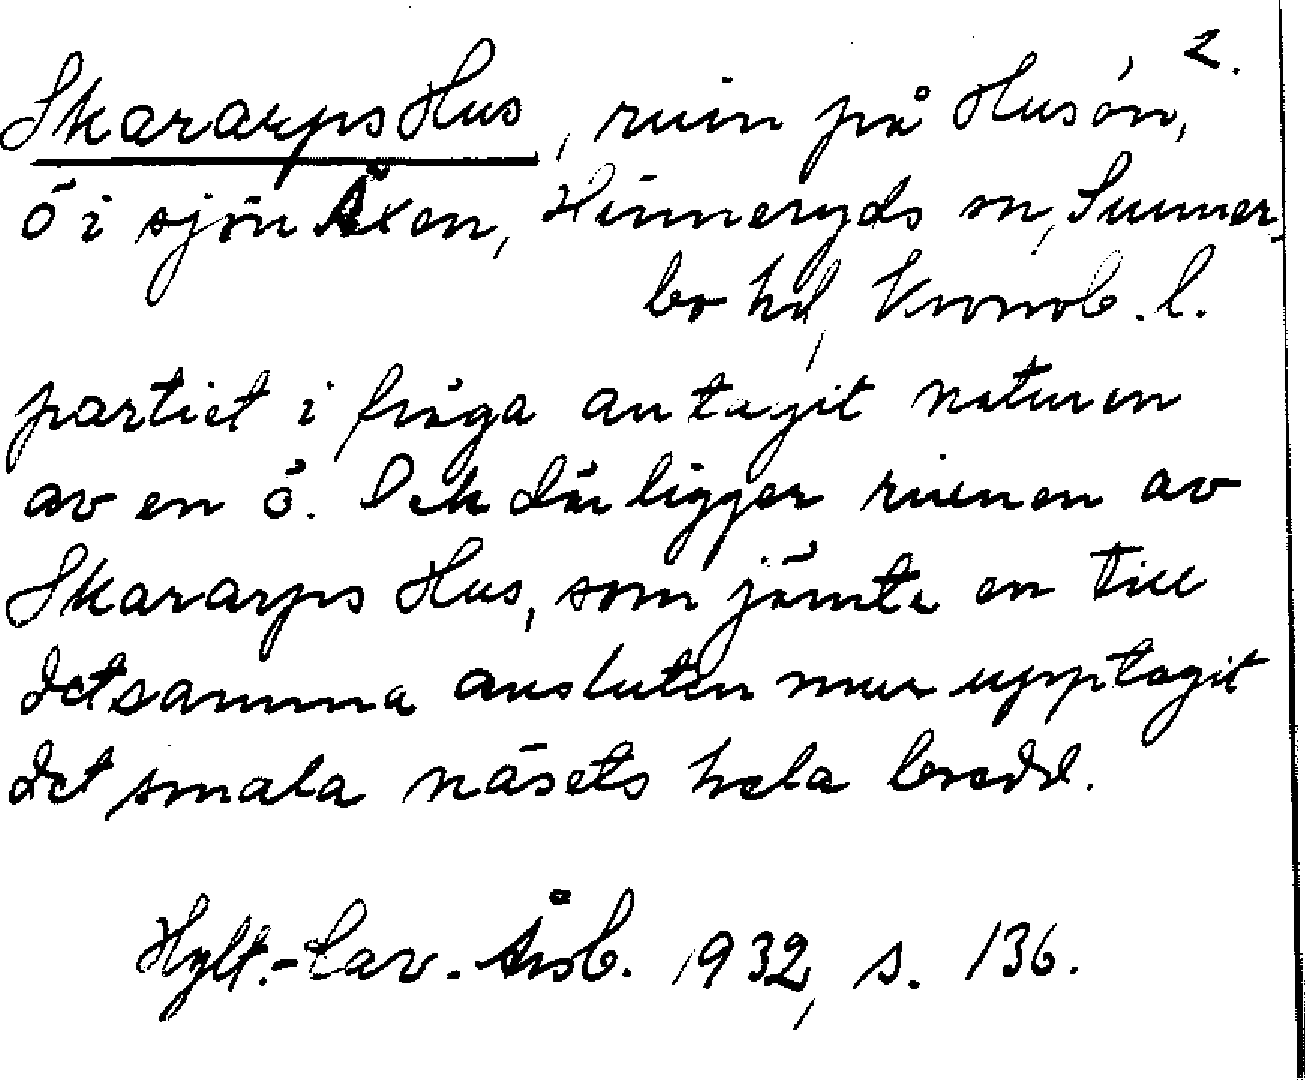 2.
Skararps Hus, ruin på Husön,
ö i sjön Åxen, Hinneryds sn, Sunner-
bo hd, Kronob. l.
partiet i fråga antagit naturen
av en ö. Och där ligger ruinen av
Skararps Hus, som jämte en till
detsamma ansluten mur upptagit
det smala näsets hela bredd.
Hylt.-Cav. Årsb. 1932, s. 136.